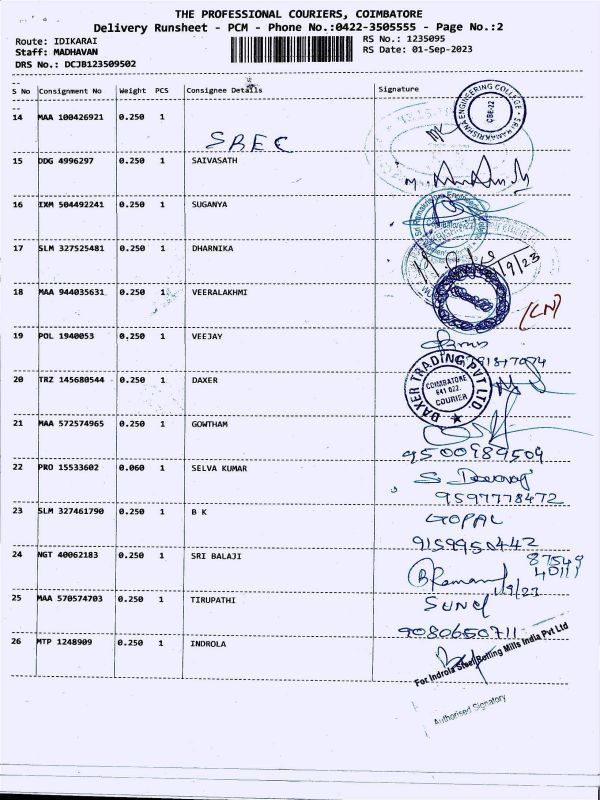 THE PROFESSIONAL COURIERS, COIMBATORE
Delivery Runsheet - PCM - Phone No.:0422-3505555 - Page No.:2
Route: IDIKARAI
RS No.: 1235095
Staff: MADHAVAN
RS Date: 01-Sep-2023
DRS No.: DCJB123509502
S No Consignment No Weight PCS Consignee Details Signature
14 MAA 100426921 0.250 1
SREC
15 DDG 4996297 0.250 1 SAIVASATH
16 IXM 504492241 0.250 1 SUGANYA
17 SLM 327525481 0.250 1 DHARNIKA
18 MAA 944035631 0.250 1 VEERALAKHMI
19 POL 1940053 0.250 1 VEEJAY
20 TRZ 145680544 0.250 1 DAXER
DAXER TRADING PVT LTD.
COIMBATORE
641 022.
COURIER
21 MAA 572574965 0.250 1 GOWTHAM
9500989509
22 PRO 15533602 0.060 1 SELVA KUMAR
9597778472
23 SLM 327461790 0.250 1 B K
GOPAL
9159950442
24 NGT 40062183 0.250 1 SRI BALAJI
87549
40111
B Raman
1/9/23
25 MAA 570574703 0.250 1 TIRUPATHI
9080650711
26 MTP 1248909 0.250 1 INDROLA
For Indrola Steel Belting Mills India Pvt Ltd
Authorised Signatory